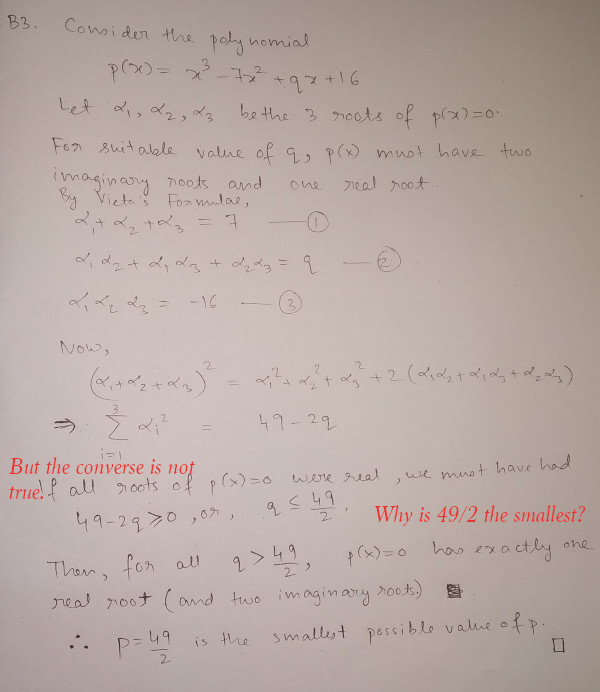 B3. Consider the polynomial
p(x) = x³ - 7x² + qx + 16
Let α₁, α₂, α₃ be the 3 roots of p(x)=0.
For suitable value of q, p(x) must have two
imaginary roots and one real root.
By Vieta's Formulae,
α₁ + α₂ + α₃ = 7 — ①
α₁α₂ + α₁α₃ + α₂α₃ = q — ②
α₁α₂α₃ = -16 — ③
Now,
(α₁+α₂+α₃)² = α₁² + α₂² + α₃² + 2(α₁α₂+α₁α₃+α₂α₃)
⇒ Σ³ᵢ₌₁ αᵢ² = 49-2q
But the converse is not
true!
If all roots of p(x)=0 were real, we must have had
49-2q ≥ 0, or, q ≤ 49/2.
Why is 49/2 the smallest?
Then, for all q > 49/2, p(x)=0 has exactly one
real root (and two imaginary roots.)
∴ p = 49/2 is the smallest possible value of p. □